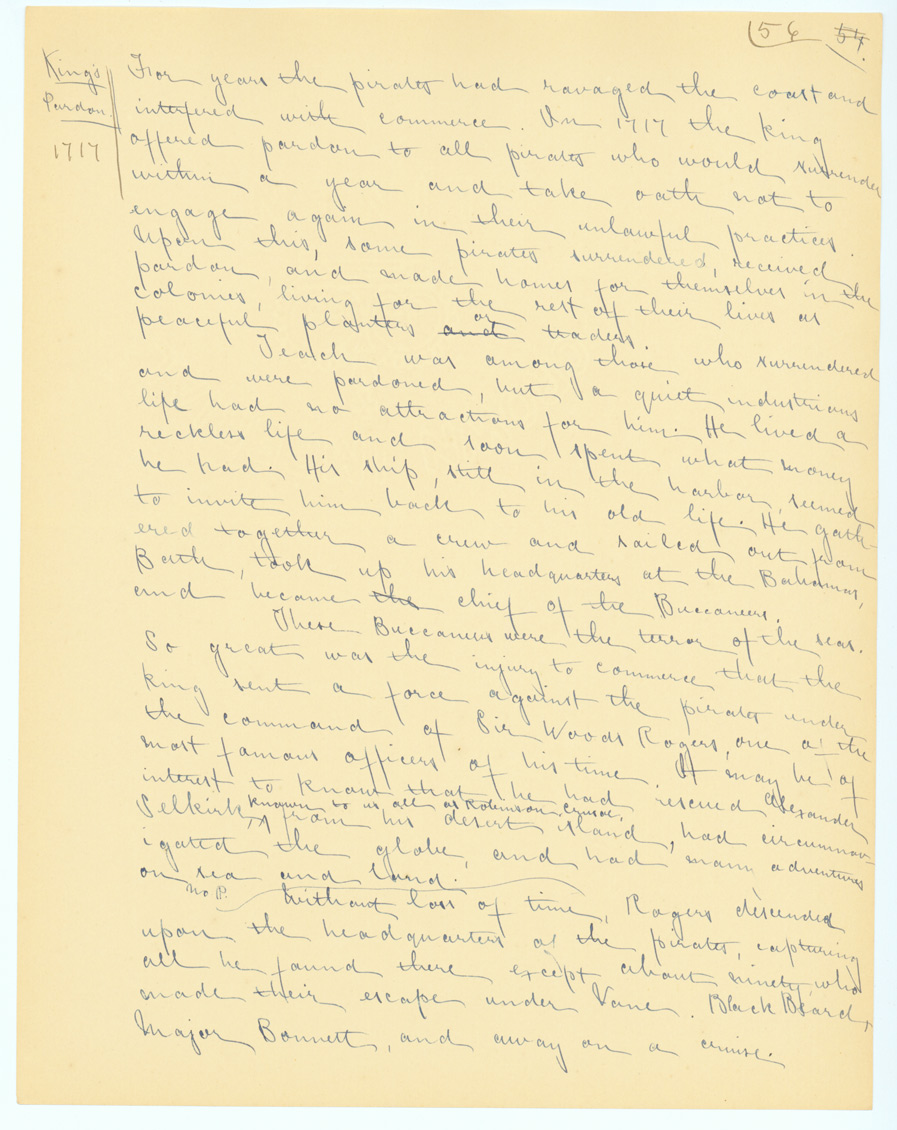 56 54.
King's
Pardon
1717
For years the pirates had ravaged the coast and
interfered with commerce. In 1717 the king
offered pardon to all pirates who would surrender
within a year and take oath not to
engage again in their unlawful practices.
Upon this, some pirates surrendered, received
pardon, and made homes for themselves in the
colonies, living for the rest of their lives as
peaceful planters and or traders.
Teach was among those who surrendered
and were pardoned, but a quiet industrious
life had no attractions for him. He lived a
reckless life and soon spent what money
he had. His ship, still in the harbor, seemed
to invite him back to his old life. He gath-
ered together a crew and sailed out from
Bath, took up his headquarters at the Bahamas,
and became the chief of the Buccaneers.
These Buccaneers were the terror of the seas.
So great was the injury to commerce that the
king sent a force against the pirates under
the command of Sir Woods Rogers, one of the
most famous officers of his time. It may be of
interest to know that he had rescued Alexander
Selkirk, known to us all as Robinson Crusoe, from his desert island, had circumnav-
igated the globe, and had many adventures
on sea and land.
No P. Without loss of time, Rogers descended
upon the headquarters of the pirates, capturing
all he found there except about ninety, who
made their escape under Vane. Black Beard,
Major Bonnett, and away on a cruise.